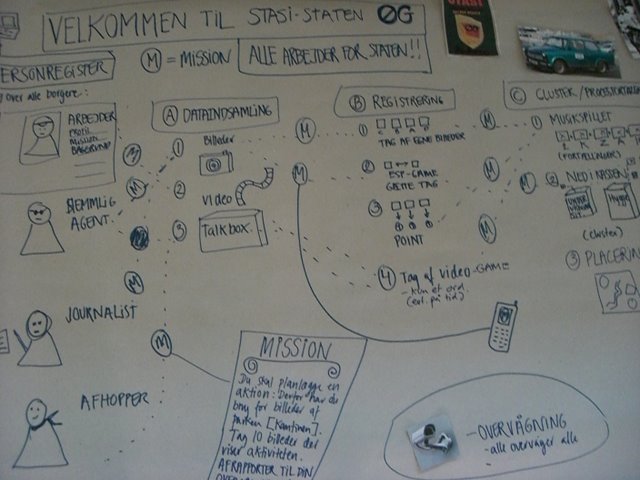 VELKOMMEN TIL STASI-STATEN ØG
STASI
ERSONREGISTER
over alle borgere:
Ⓜ = MISSION
ALLE ARBEJDER FOR STATEN!!
ARBEJDER
Ⓐ DATAINDSAMLING
① Billeder
② VIDEO
③ Talkbox
Ⓑ REGISTRERING
① TAG AF EGNE BILLEDER
② ESP-GAME
GÆTTE TAG
③ POINT
④ Tag af video-GAME
- kun et ord
Ⓒ CLUSTER/
① MUSIKSPILLET
② NED I KASSEN
Hygge
(Cluster)
③ PLACERIN
HEMMLIG
AGENT
JOURNALIST
AFHOPPER
M
M
M
M
M
M
M
M
M
M
MISSION
Du skal planlægge en
aktion: Derfor har du
brug for billeder af
parken [Kantinen].
Tag 10 billeder der
viser aktiviteten.
AFRAPPORTER TIL DIN
- OVERVÅGNING
- alle overvåger alle